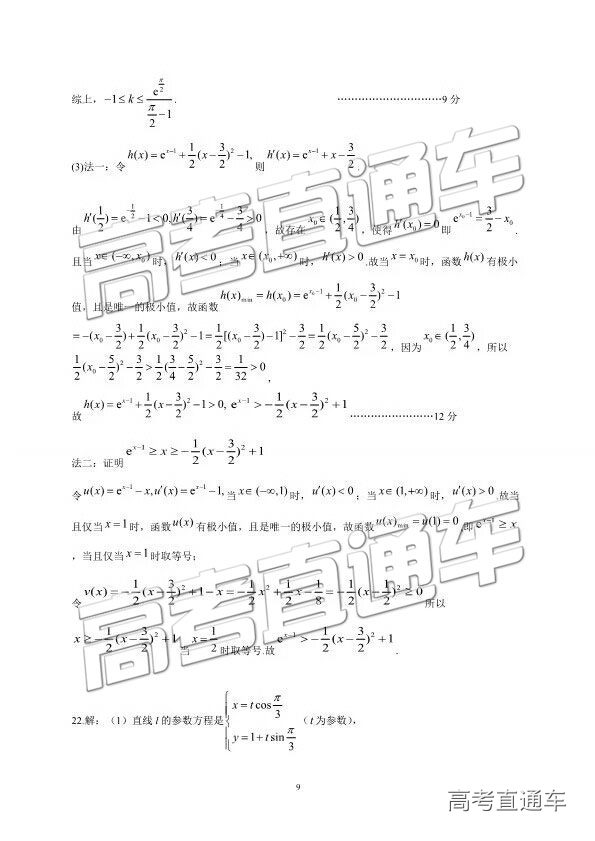 综上，$-1\le k\le\dfrac{e^{\frac{\pi}{2}}}{\frac{\pi}{2}-1}$. …………………………9 分
(3)法一：令 $h(x)=e^{x-1}+\frac{1}{2}(x-\frac{3}{2})^2-1,$ 则 $h'(x)=e^{x-1}+x-\frac{3}{2}$.
由 $h'(\frac{1}{2})=e^{-\frac{1}{2}}-1<0, h'(\frac{3}{4})=e^{-\frac{1}{4}}-\frac{3}{4}>0$，故存在 $x_0\in(\frac{1}{2},\frac{3}{4})$，使得 $h'(x_0)=0$ 即 $e^{x_0-1}=\frac{3}{2}-x_0$.
且当 $x\in(-\infty,x_0)$ 时，$h'(x)<0$；当 $x\in(x_0,+\infty)$ 时，$h'(x)>0$.故当 $x=x_0$ 时，函数 $h(x)$ 有极小
值，且是唯一的极小值，故函数 $h(x)_{\min}=h(x_0)=e^{x_0-1}+\frac{1}{2}(x_0-\frac{3}{2})^2-1$
$=-(x_0-\frac{3}{2})+\frac{1}{2}(x_0-\frac{3}{2})^2-1=\frac{1}{2}[(x_0-\frac{3}{2})-1]^2-\frac{3}{2}=\frac{1}{2}(x_0-\frac{5}{2})^2-\frac{3}{2}$，因为 $x_0\in(\frac{1}{2},\frac{3}{4})$，所以
$\frac{1}{2}(x_0-\frac{5}{2})^2-\frac{3}{2}>\frac{1}{2}(\frac{3}{4}-\frac{5}{2})^2-\frac{3}{2}=\frac{1}{32}>0$，
故 $h(x)=e^{x-1}+\frac{1}{2}(x-\frac{3}{2})^2-1>0,\ e^{x-1}>-\frac{1}{2}(x-\frac{3}{2})^2+1$ ……………………12 分
法二：证明 $e^{x-1}\ge x\ge-\frac{1}{2}(x-\frac{3}{2})^2+1$
令 $u(x)=e^{x-1}-x, u'(x)=e^{x-1}-1,$ 当 $x\in(-\infty,1)$ 时，$u'(x)<0$；当 $x\in(1,+\infty)$ 时，$u'(x)>0$.故当
且仅当 $x=1$ 时，函数 $u(x)$ 有极小值，且是唯一的极小值，故函数 $u(x)_{\min}=u(1)=0$ 即 $e^{x-1}\ge x$
，当且仅当 $x=1$ 时取等号；
令 $v(x)=-\frac{1}{2}(x-\frac{3}{2})^2+1-x=-\frac{1}{2}x^2+\frac{1}{2}x-\frac{1}{8}=-\frac{1}{2}(x-\frac{1}{2})^2\ge 0$ 所以
$x\ge-\frac{1}{2}(x-\frac{3}{2})^2+1$ 当 $x=\frac{1}{2}$ 时取等号.故 $e^{x-1}>-\frac{1}{2}(x-\frac{3}{2})^2+1$.
22.解：（1）直线 l 的参数方程是 $\begin{cases}x=t\cos\frac{\pi}{3}\\y=1+t\sin\frac{\pi}{3}\end{cases}$（t 为参数），
高考直通车
高考直通车
9
高考直通车